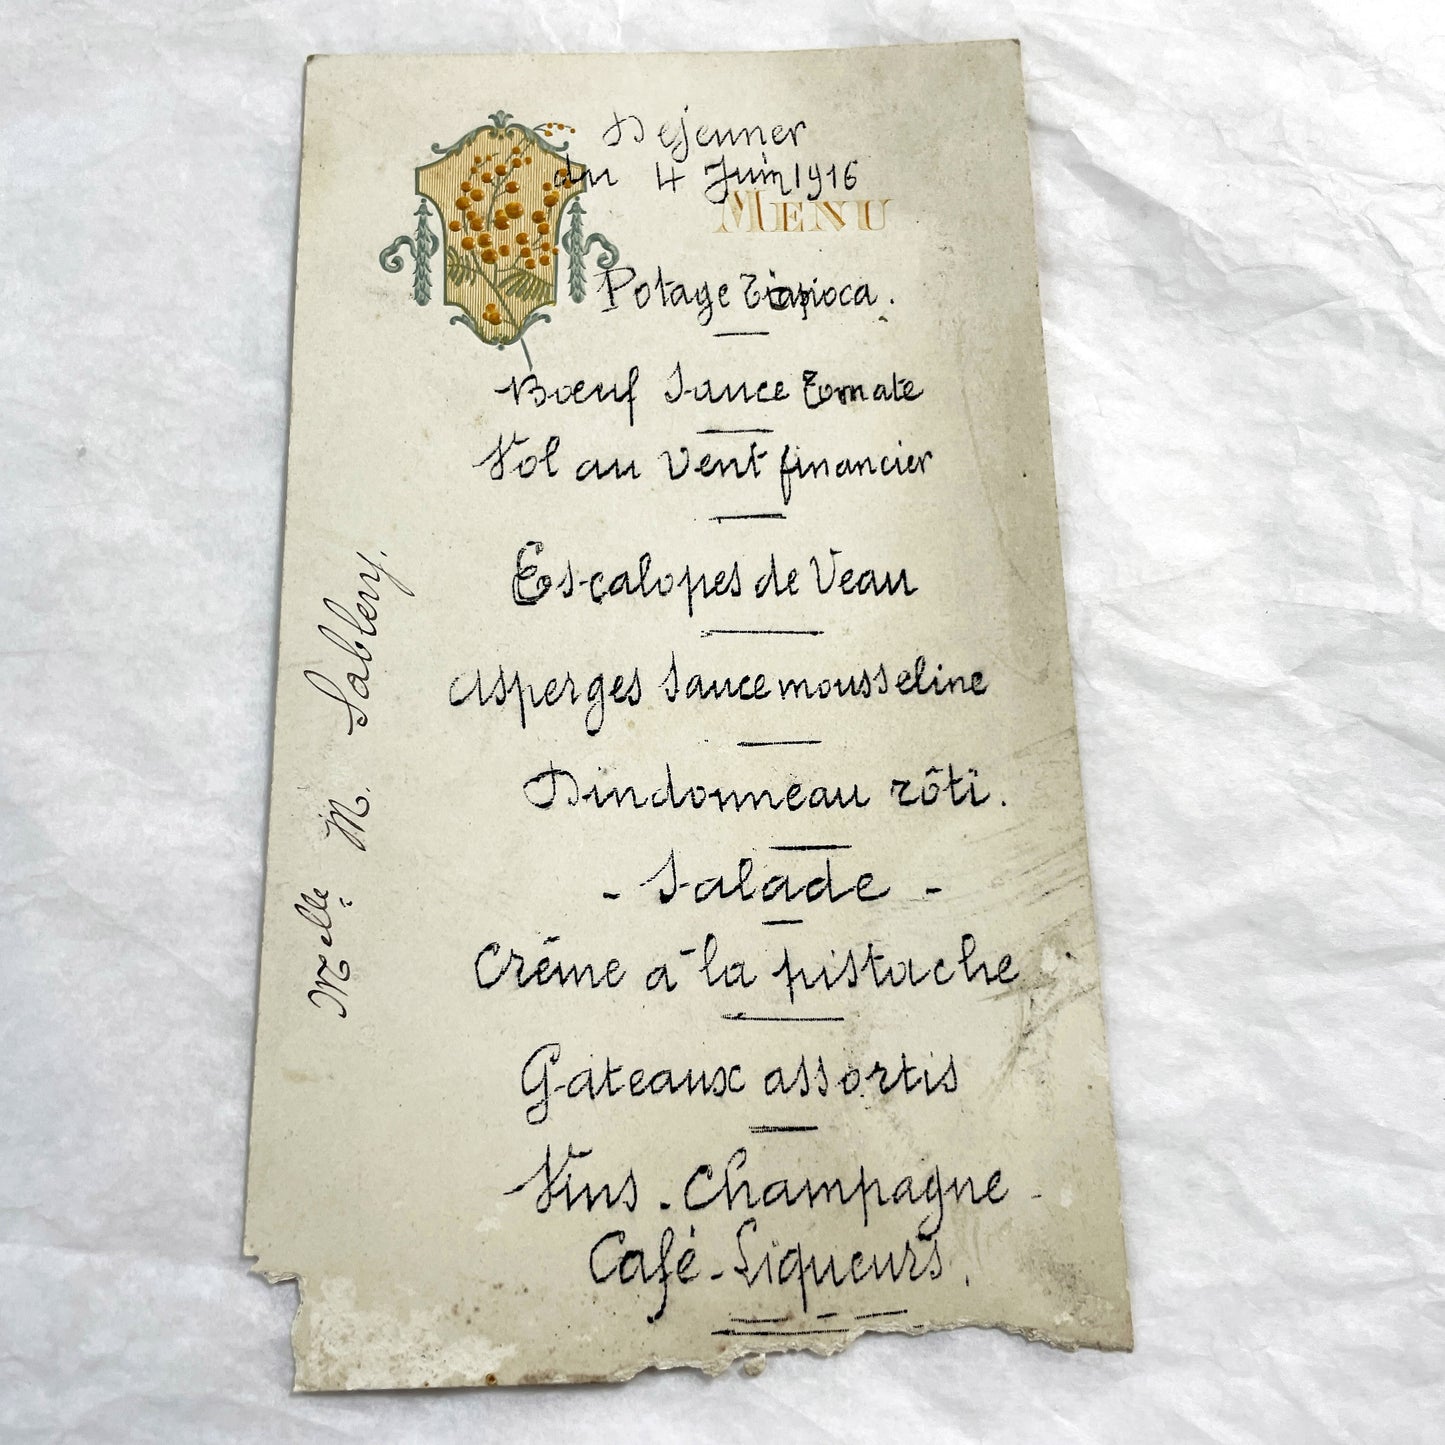 Dejeuner
du 4 Juin 1916
MENU
Potage Tiapioca.
Bœuf Sauce Tomate
Vol au Vent financier
Escalopes de Veau
Asperges Sauce mousseline
Dindonneau rôti.
- Salade -
Crême à la pistache
Gateaux assortis
Vins - Champagne -
Café - Liqueurs.
Melle M. Sablery.